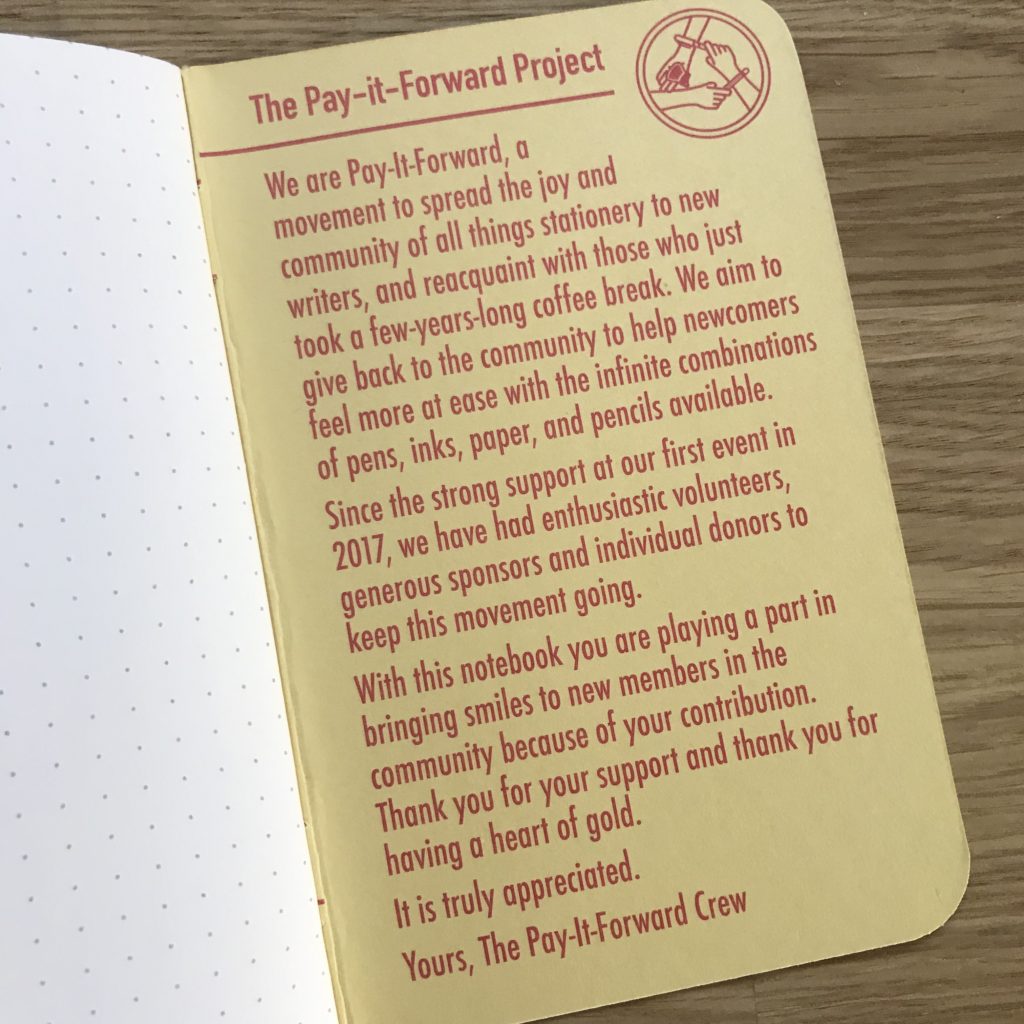 The Pay-it-Forward Project
We are Pay-It-Forward, a
movement to spread the joy and
community of all things stationery to new
writers, and reacquaint with those who just
took a few-years-long coffee break. We aim to
give back to the community to help newcomers
feel more at ease with the infinite combinations
of pens, inks, paper, and pencils available.
Since the strong support at our first event in
2017, we have had enthusiastic volunteers,
generous sponsors and individual donors to
keep this movement going.
With this notebook you are playing a part in
bringing smiles to new members in the
community because of your contribution.
Thank you for your support and thank you for
having a heart of gold.
It is truly appreciated.
Yours, The Pay-It-Forward Crew